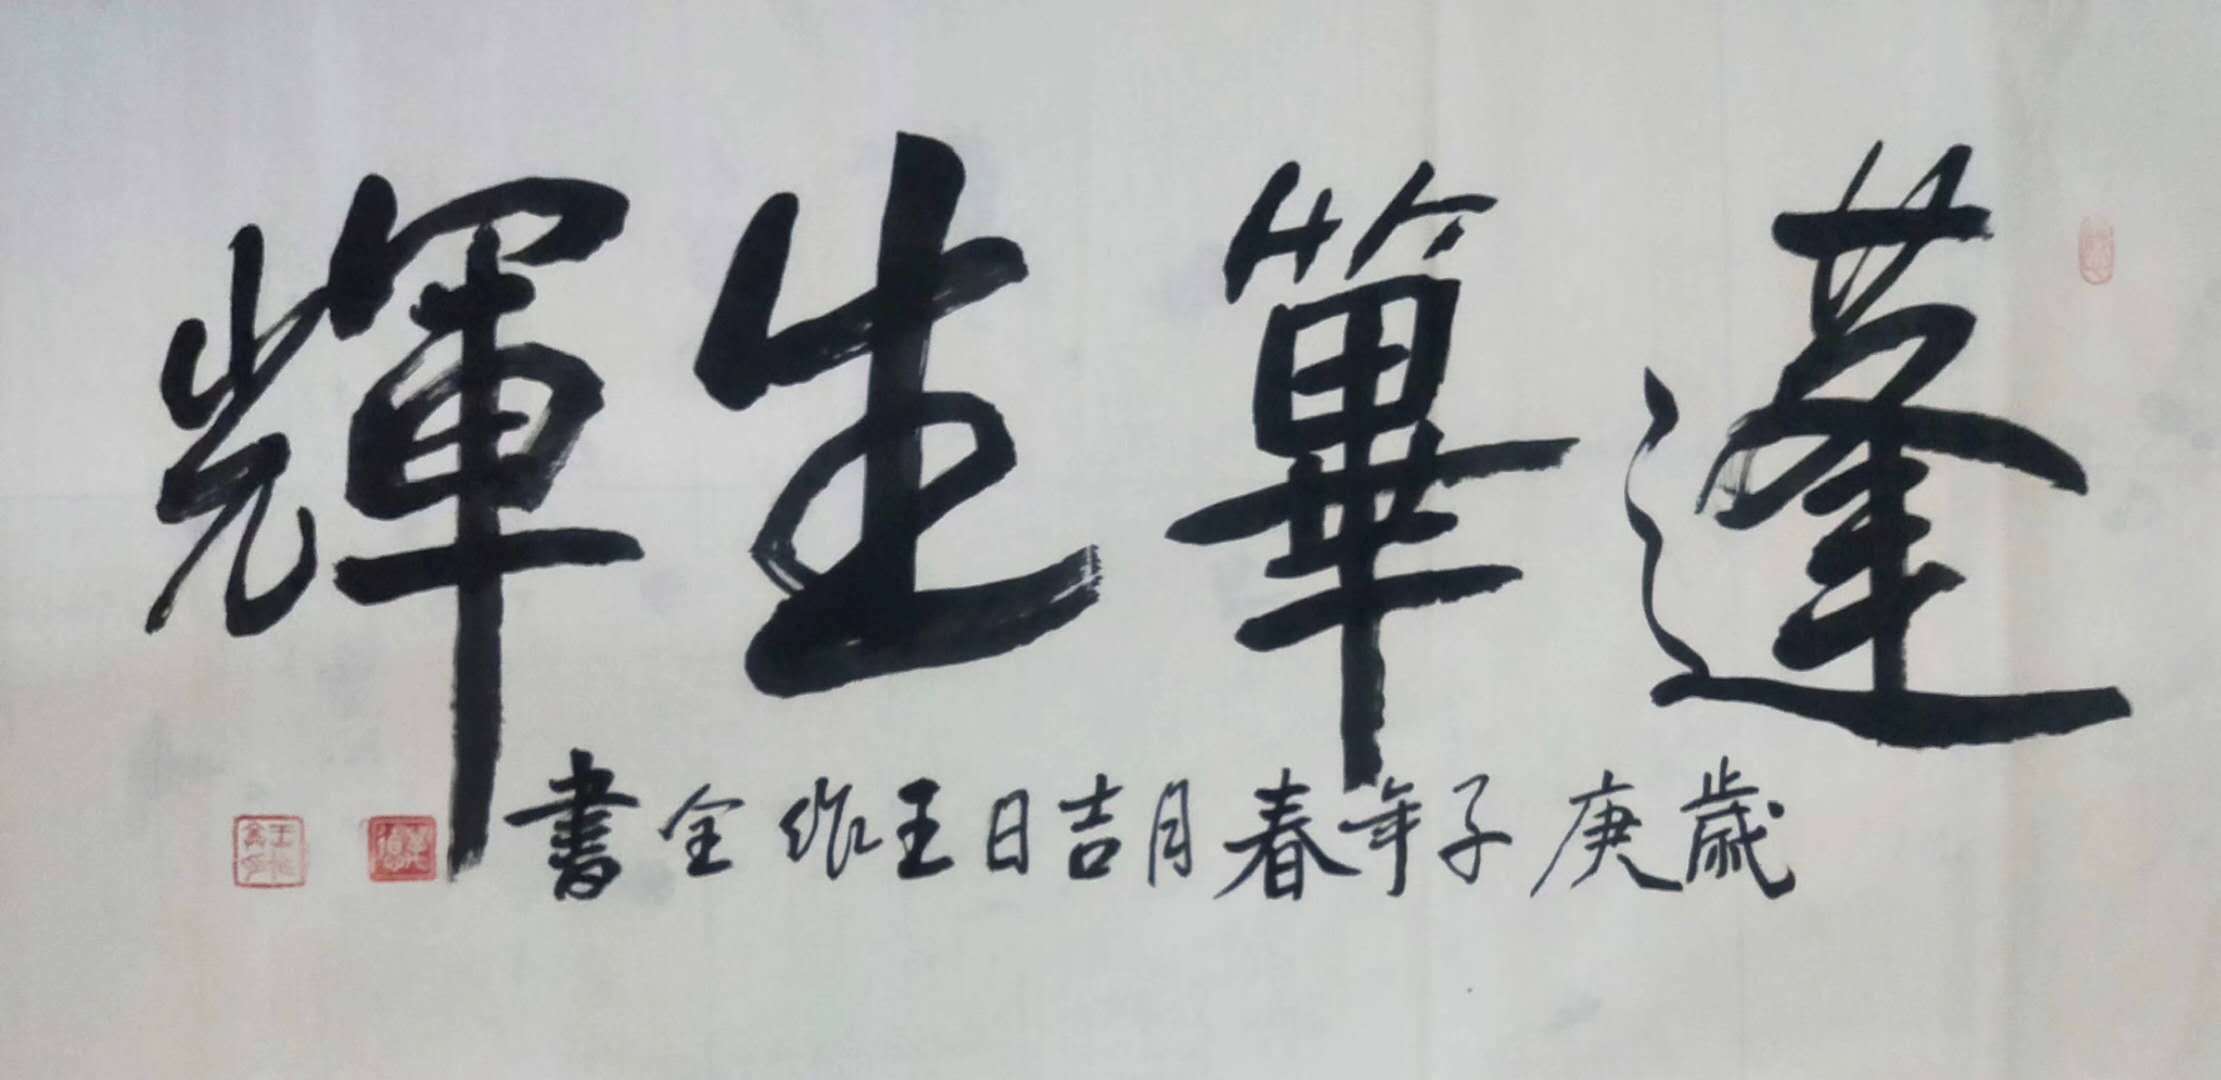 蓬篳生輝
歲庚子年春月吉日王作全書